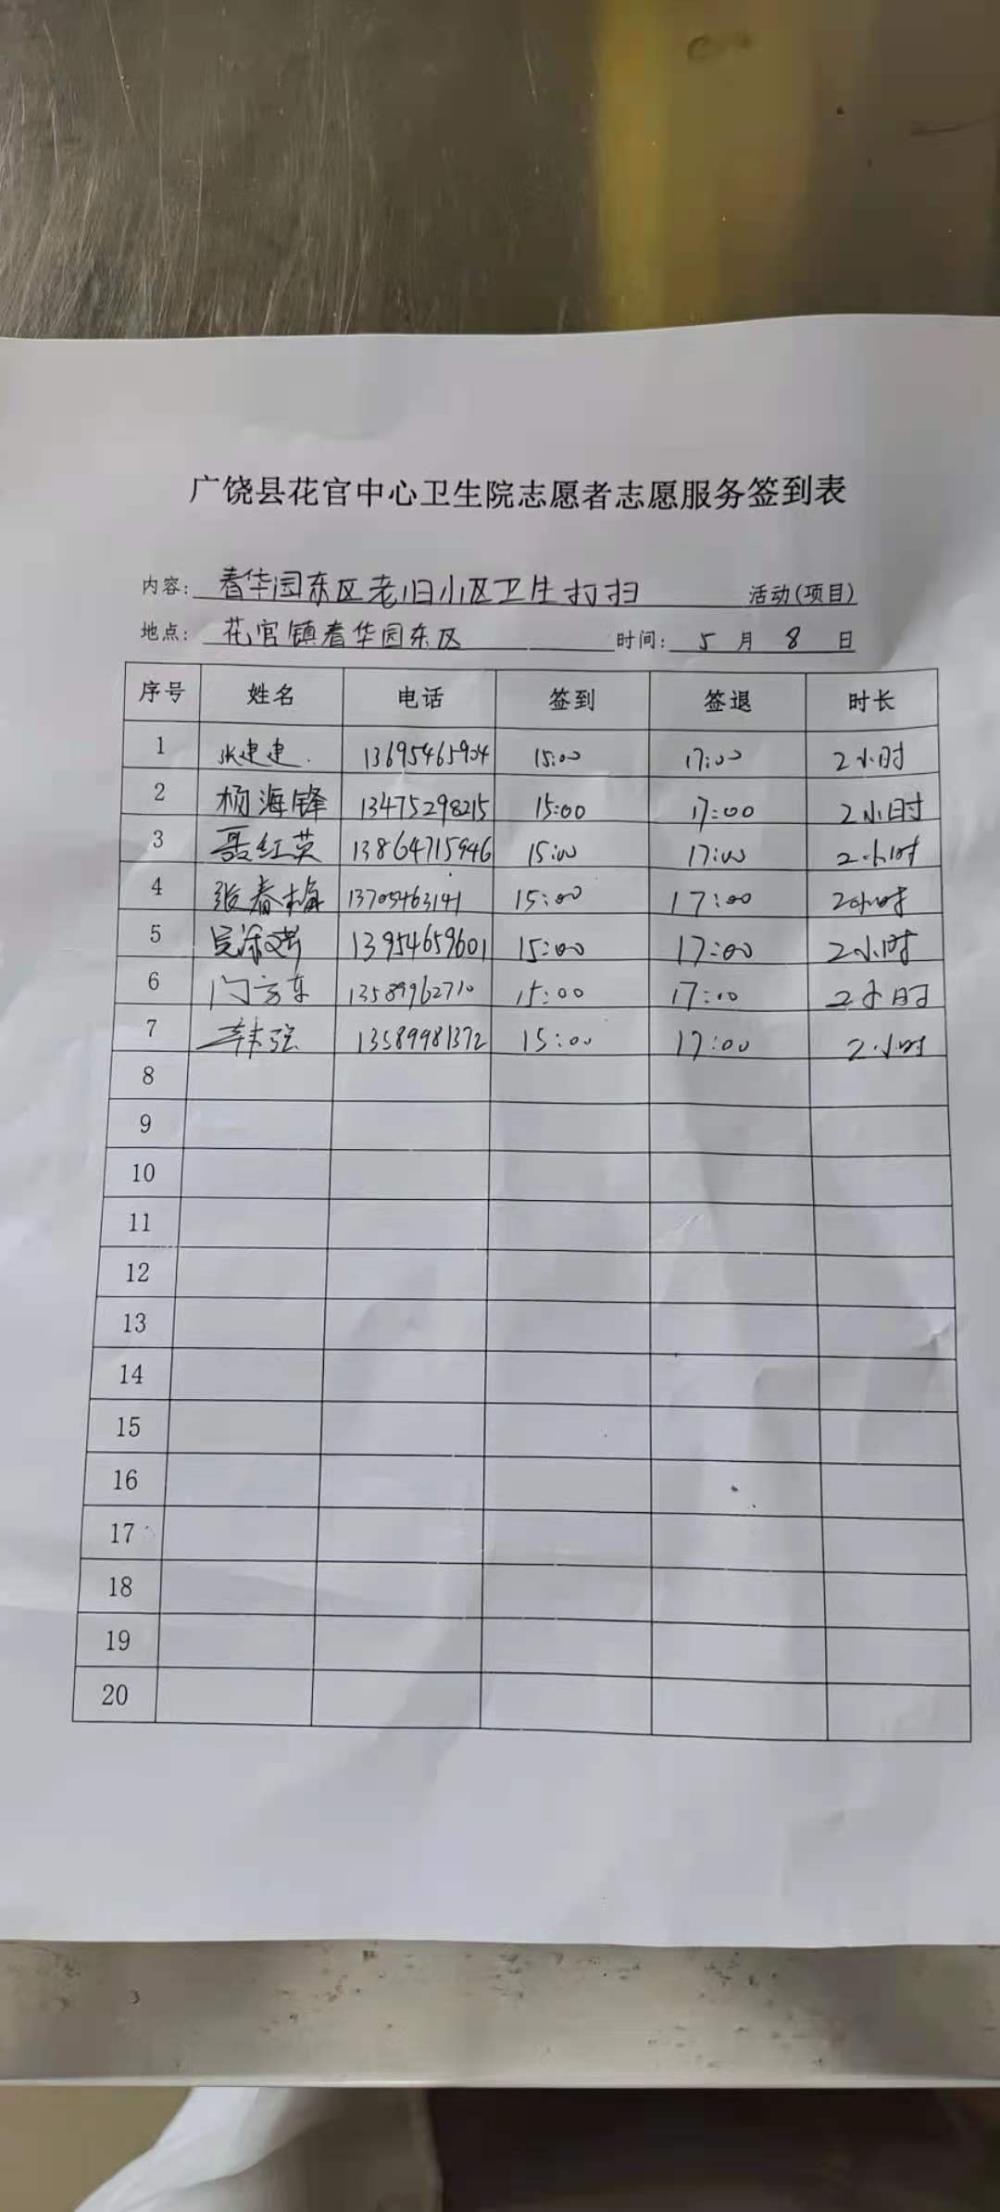 广饶县花官中心卫生院志愿者志愿服务签到表
内容: 春华园东区老旧小区卫生打扫 活动(项目)
地点: 花官镇春华园东区 时间: 5 月 8 日
序号 姓名 电话 签到 签退 时长
1 张建建 13695465904 15:00 17:00 2小时
2 杨海锋 13475298215 15:00 17:00 2小时
3 聂红英 13864715946 15:00 17:00 2小时
4 张春梅 13705463141 15:00 17:00 2小时
5 13954659601 15:00 17:00 2小时
6 门方东 13589962710 15:00 17:00 2小时
7 韩强 13589981372 15:00 17:00 2小时
8
9
10
11
12
13
14
15
16
17
18
19
20